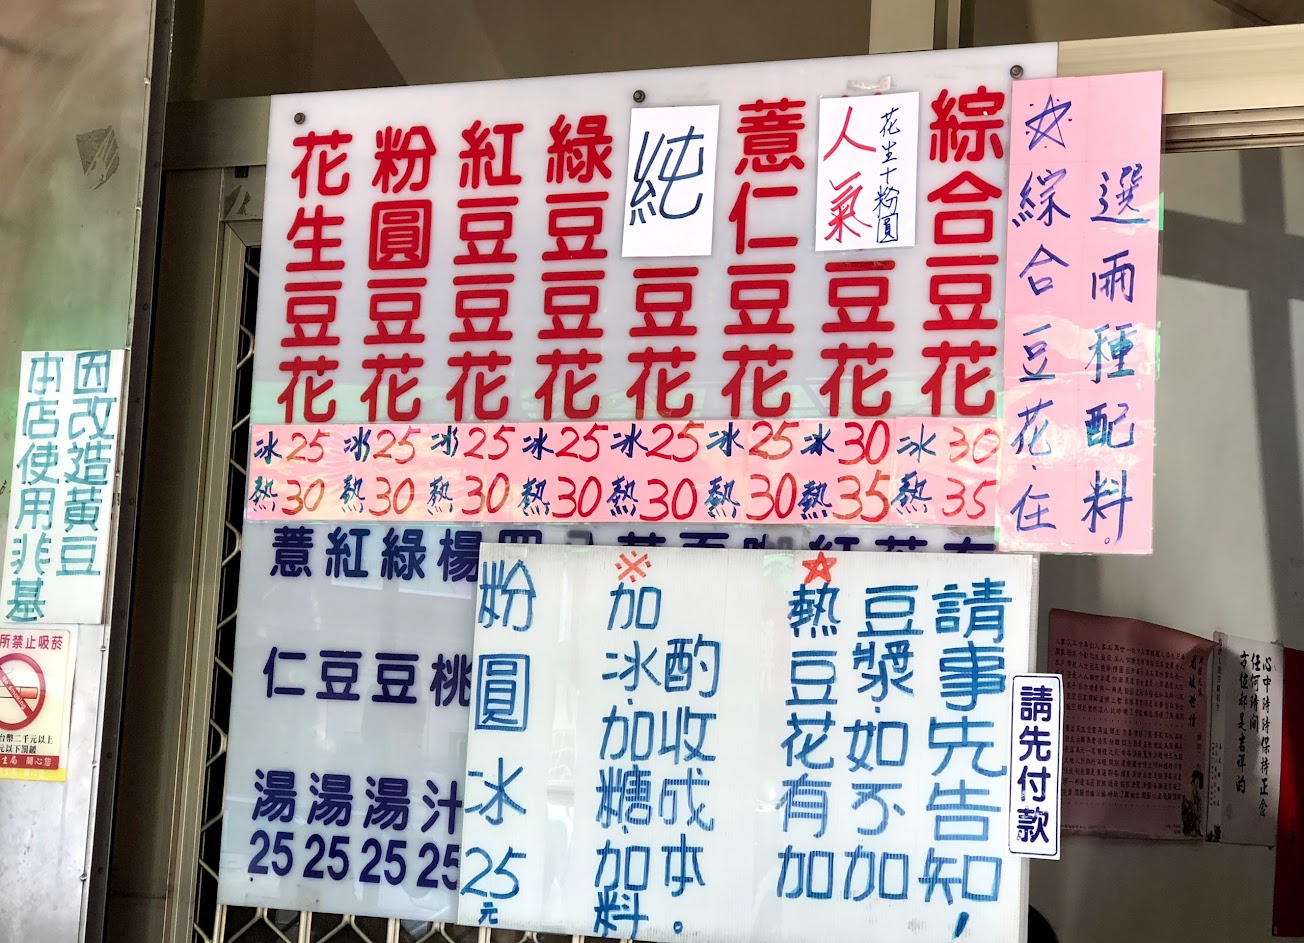 綜合豆花
人氣
花生+粉圓
豆花
薏仁豆花
純
豆花
綠豆豆花
紅豆豆花
粉圓豆花
花生豆花
冰25 冰25 冰25 冰25 冰25 冰25 冰30 冰30
熱30 熱30 熱30 熱30 熱30 熱30 熱35 熱35
☆綜合豆花、任
選兩種配料。
薏仁湯25
紅豆湯25
綠豆湯25
楊桃汁25
請事先告知,
豆漿、如不加
☆熱豆花有加
※加冰、加糖、加料
酌收成本。
粉圓冰25元
請先付款
因改造黃豆
本店使用非基
所禁止吸菸
台幣二千元以上
心中時時保持正念
任何時間
方位都是吉祥的